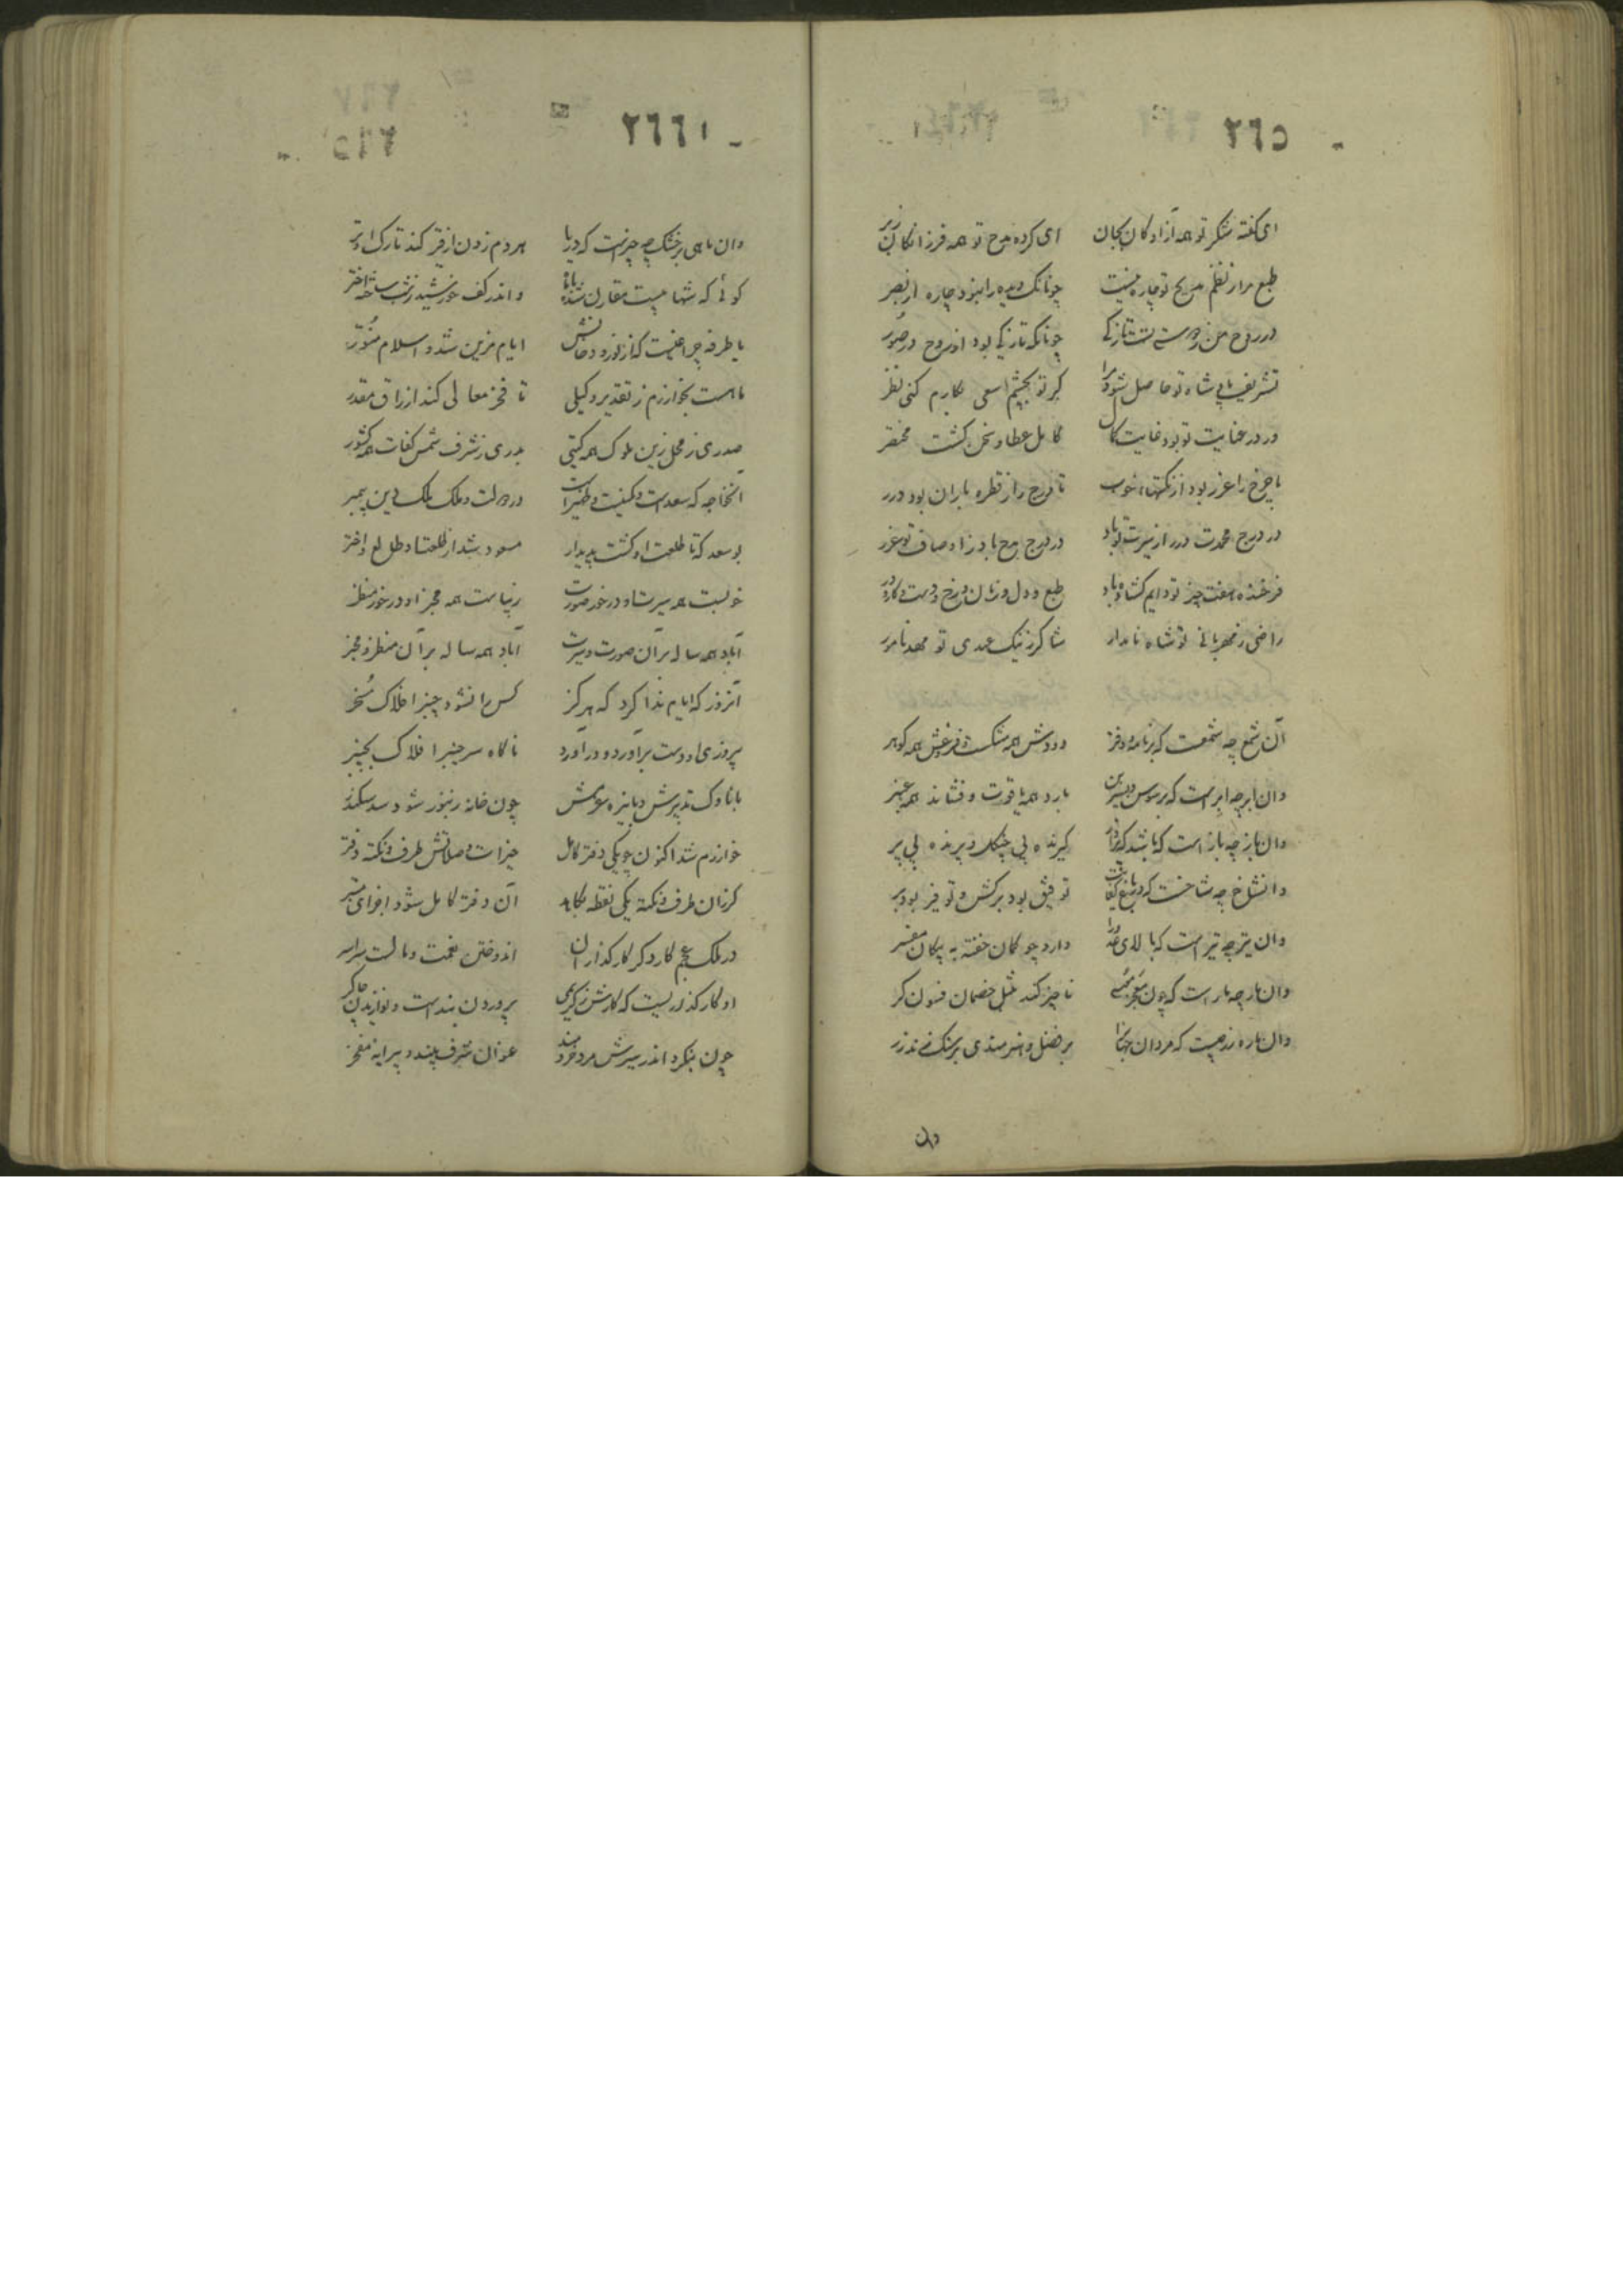 ٢٦٥
ای گفته شکر تو همه آزادگان بجان ای کرده مدح تو همه فرزانگان زبر
طبع مرا ز نظم مدیح تو چاره نیست چونانک دیده را نبود چاره از بصر
در روح من ز دوستی تست تازگی چونانکه تازگی بود از روح در صور
تشریف شاه تو حاصل شود مرا گر تو بچشم سعی بکارم کنی نظر
ور در عنایت تو بود غایت کمال کامل عطا و نحن گشت مختصر
تا چرخ را غرر بود از شهب تا درج را ز قطره باران بود درر
در درج محمدت درر از سیرت تو باد در درج مدح باد ز اوصاف تو غرر
فرخنده هفت چیز تو دایم گشاده باد طبع و دل و زبان و رخ و دست و کار و در
راضی ز مهربانی تو شاه نامدار شاکر ز نیک عهدی تو مهد نامور
آن شمع چه شمعست که بر نامه و دفتر دودش همه مشکست و فروغش همه گوهر
وان ابر چه ابر است که بر سوسن و نسرین بارد همه یاقوت و فشاند همه عنبر
وان باز چه باز است که باشد گیرنده بی چنگل و پرنده بی پر
وان شاخ چه شاخست که در باغ کفایت توفیق بود برکش و توفیر بود بر
وان تیر چه تیر است که بالای عدو را دارد چو کمان خفته به پیکان
وان مار چه مار است که چون ناچیز کند مثل خصمان فسونگر
وان پاره زر چیست که مردان جهانرا بر فضل و هنرمندی بی سنگ زند زر
وان
٢٦٦
وان ماهی بر خشک چه چیزست که دریا هر دم زدن از قیر کند تارک او تر
گوئی که شهابیست مقارن شده با ماه و اندر کف خورشید ز شب ساخته اختر
یا طرفه چراغیست که از نور و دخانش ایام مزین شد و اسلام منور
تا هست بخوارزم ز تقدیر وکیلی تا فخر معالی کند ارزاق مقدر
صدری ز محل زین ملوک همه گیتی بدری ز شرف شمس کفات همه کشور
آنخواجه که سعدست و در دولت و ملک ملک دین پیمبر
بوسعد که تا طلعت او گشت پدیدار مسعود شد از طلعت او طالع و اختر
خوبست همه سیرت او در خور صورت زیباست همه مخبر او در خور منظر
آباد همه ساله بر آن صورت و سیرت آباد همه ساله بر آن منظر و مخبر
آنروز که ایام ندا کرد که هرگز کس را نشود چنبر افلاک مسخر
پیروزی او دست برآورد و درآورد ناگاه سر چنبر افلاک بچنبر
با ناوک تدبیرش و با نیزه عزمش چون خانه زنبور شود سد سکندر
خوارزم شد اکنون چو یکی دفتر کامل خیرات و صلاتش طرف و نکته دفتر
گر زان طرف و نکته یکی نقطه بکاهد آن دفتر کامل شود اجزای مبتر
در ملک عجم کار دگر کارگذاران اندوختن نعمت و مالست سراسر
او کارگذاریست که کارش ز کریمی پروردن بنده است و نوازیدن چاکر
چون بنگرد اندر سیرش مرد خردمند عنوان شرف بیند و پیرایه مفخر